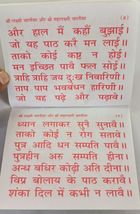 श्री लक्ष्मी चालीसा और श्री महालक्ष्मी चालीसा
और हाल मैं कहौं बुझाई।
जो यह पाठ करै मन लाई॥
ताको कोई कष्ट न होई।
मन इच्छित पावै फल सोई॥
त्राहि त्राहि जय दुःख निवारिणी।
ताप भव बंधन हारिणी॥
जो यह पढ़े और पढ़ावे।
ध्यान लगाकर सुने सुनावै॥
ताको कोई न रोग सतावे।
पुत्र आदि धन सम्पति पावे॥
पुत्रहीन अरु सम्पति हीना।
अन्ध बधिर कोढ़ी अति दीना॥
विप्र बोलाय के पाठ करावे।
शंका दिल में कभी न लावे॥